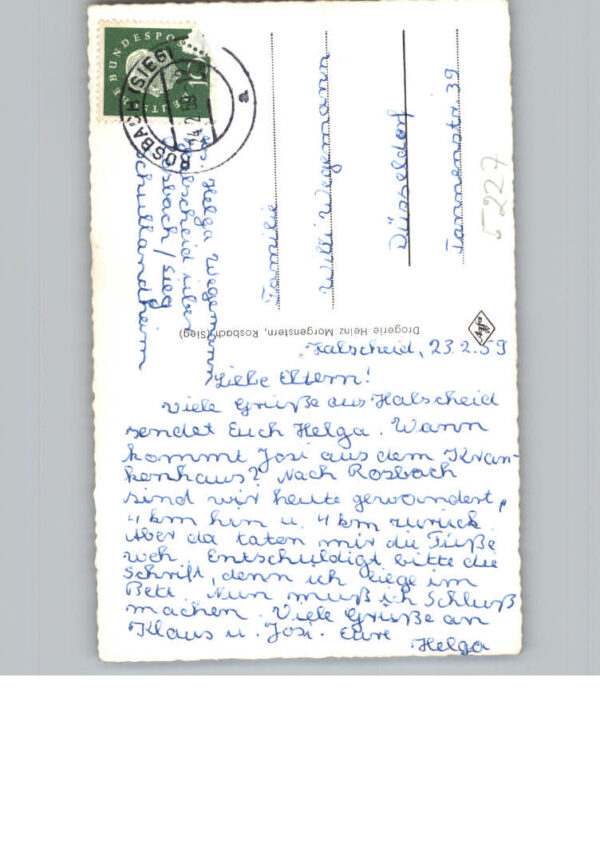 Halscheid, 23.2.59
Liebe Eltern!
Viele Grüße aus Halscheid
sendet Euch Helga. Wann
kommt Josi aus dem Kran-
kenhaus? Nach Rosbach
sind wir heute gewandert,
4 km hin u. 4 km zurück.
Aber da taten mir die Füße
weh. Entschuldigt bitte die
Schrift, denn ich liege im
Bett. Nun muß ich Schluß
machen. Viele Grüße an
Klaus u. Josi. Eure
Helga
Familie
Willi Wegemann
Düsseldorf
Tannenstr. 39
Helga Wegemann
Halscheid über
Rosbach/Sieg
Schullandheim
Drogerie Heinz Morgenstern, Rosbach(Sieg)
Agfa
BUNDESPOS
10
ROSBACH (SIEG)
a
5227